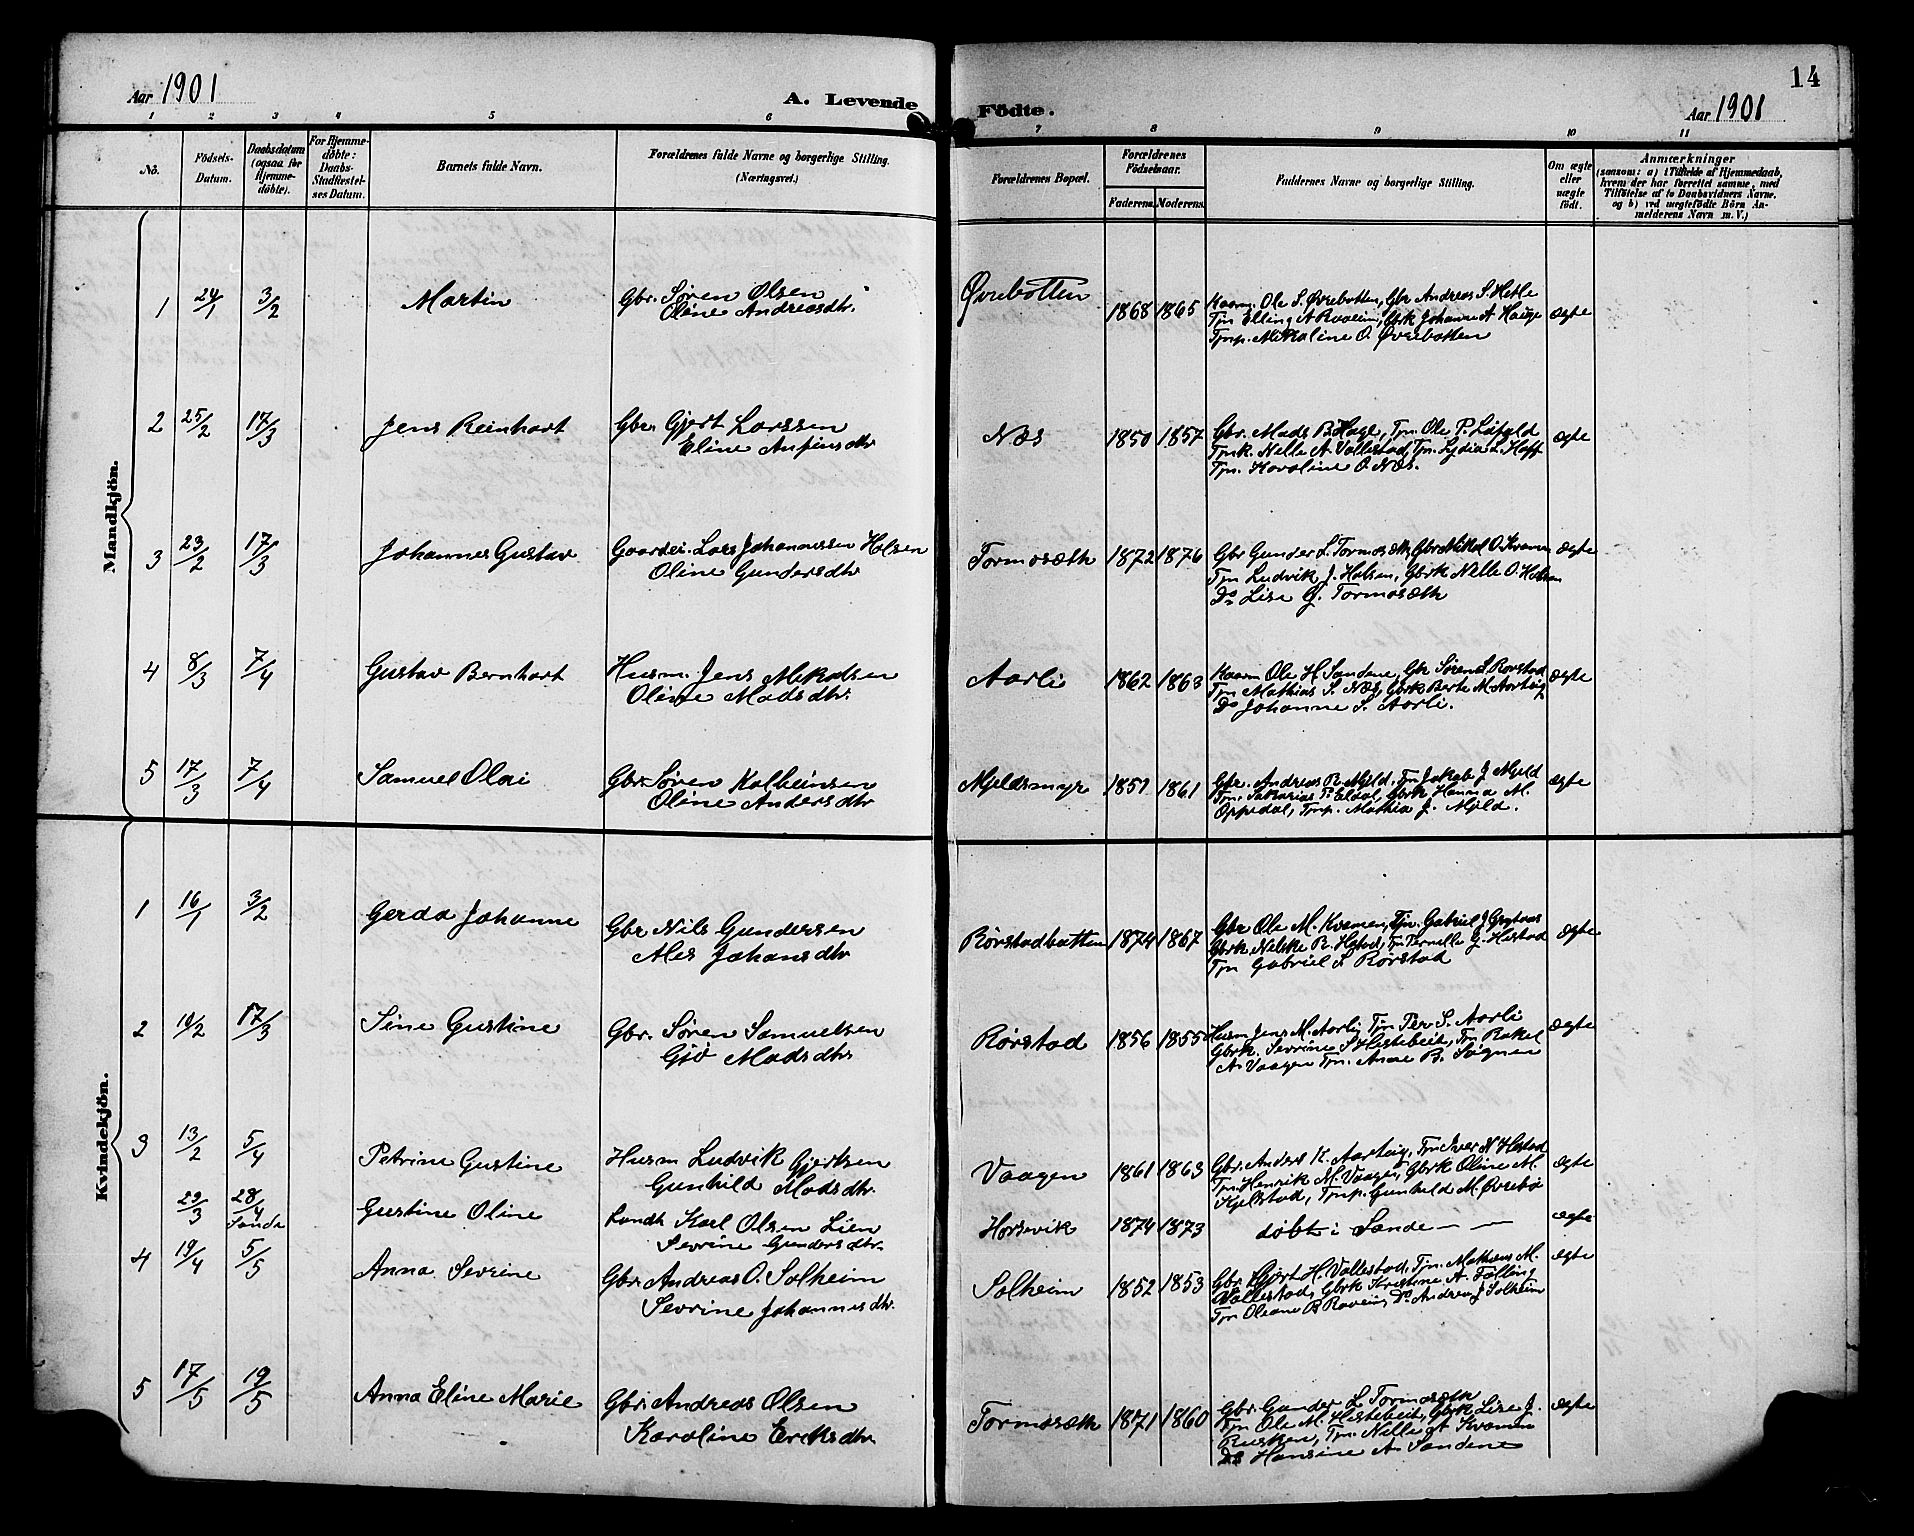 14
Aar 1901
A. Levende Födte.
Aar 1901
1 2 3 4 5 6 7 8 9 10 11
No.
Födsels-
Datum.
Daabsdatum
(ogsaa for
Hjemme-
döbte).
For Hjemme-
döbte:
Daabs-
Stadfæstel-
ses Datum.
Barnets fulde Navn.
Forældrenes fulde Navne og borgerlige Stilling.
(Næringsvei.)
Forældrenes Bopæl.
Forældrenes
Födselsaar.
Faderens. Moderens.
Faddernes Navne og borgerlige Stilling.
Om ægte
eller
uægte
födt.
Anmærkninger
(saasom: a) i Tilfælde af Hjemmedaab,
hvem der har forrettet samme, med
Tilföielse af to Daabsvidners Navne,
og b) ved uægtefödte Börn An-
melderens Navn m. V.)
Mandkjön.
1 24/1 3/2 Martin Gbr. Søren Olsen
Oline Andreasdtr.
Øvrebotten 1868 1865 Kaarm. Ole S. Øvrebotten, Gbr Andreas S. Hetle
Tjm Elling A Rvaleim, Gbrk Johanne A Hauge
Tjnp. Mikaline O. Øvrebotten
ægte
2 25/2 17/3 Jens Reinhart Gbr. Gjert Larssen
Eline Anfinsdtr
Næs 1850 1857 Gbr. Mads B Hage, Tjm. Ole P. Löfold
Tjnk. Nille A. Vallestad, Tjn. Lydia L. Hoff
Tjn. Karoline O. Næs.
ægte
3 23/2 17/3 Johannes Gustav Gaardbr. Lars Johannessen Holsen
Oline Gundersdtr
Tormosæth 1872 1876 Gbr Gunder L. Tormosæth, Gbr Mikal O. Kvamm
Tjn Ludvik J. Holsen, Gbrk Nille O. Holsen
Do Lise G. Tormosæth
ægte
4 8/3 7/4 Gustav Bernhart Husm. Jens Mikalsen
Oline Madsdtr.
Aarli 1862 1863 Kaarm Ole H. Sandene, Gbr Søren S. Rørstad
Tjn Mathias S. Næs, Gbrk Berte M. Aartvig
Do Johanne S. Aarli.
ægte
5 17/3 7/4 Samuel Olai Gbr. Søren Kolbeinsen
Oline Andersdtr
Mjeldsmyr 1857 1861 Gbr. Andreas R. Mjeld, Tjn Jakob J Mjeld
Tjn. Sakarias P. Eldal, Gbrk Hanna M.
Oppedal, Tjnp. Mathea J. Mjeld.
ægte
Kvindekjön.
1 16/1 3/2 Gerda Johanne Gbr Nils Gundersen
Ales Johansdtr
Rørstadbotten 1874 1867 Gbr Ole M. Kvamen, Tjn. Gabriel J Grytaas
Gbrk. Nilkke R. Hstad, Tjn Pernille G. Hestad
Tjn Gabriel S. Rørstad
ægte
2 10/2 17/3 Sine Gustine Gbr. Søren Samuelsen
Gjö Madsdtr
Rørstad 1856 1855 Husm Jens M. Aarli, Tjn Per S. Aarli
Gbrk. Sevrine S Hestebeit, Tjn Rakel
A. Vaagen Tjn. Anne B. Sögnen
ægte
3 13/2 5/4 Petrine Gustine Husm Ludvik Gjertsen
Gunhild Madsdtr.
Vaagen 1861 1863 Gbr. Anders K. Aartvig, Tjn Iver N Hestad
Tjn. Henrik M. Vaagen, Gbrk Oline M.
Kjelstad, Tjnp. Gunhild M. Øvrebø
ægte
29/3 28/4 Sande Gustine Oline Landh Karl Olsen Lien
Sevrine Gundersdtr.
Horsevik 1874 1873 døbt i Sande — —
ægte
4 19/4 5/5 Anna Sevrine Gbr. Andreas O. Solheim
Sevrine Johannesdtr.
Solheim 1852 1853 Gbr. Gjert H. Vallestad, Tjn. Mathæus M.
Vallestad, Gbrk Kristine A. Fölling
Tjn Oleane B Rovein, Do Andrea J Solheim
ægte
5 17/5 19/5 Anna Eline Marie Gbr. Andreas Olsen
Karoline Eriksdtr
Tormosæth 1871 1860 Gbr. Gunder L Tormosæth
Tjn Ole M. Hestebeit, Gbrk Lise J.
Rusken, Tjn. Nille A Kvamm
Do Hansine A. Sandene
ægte